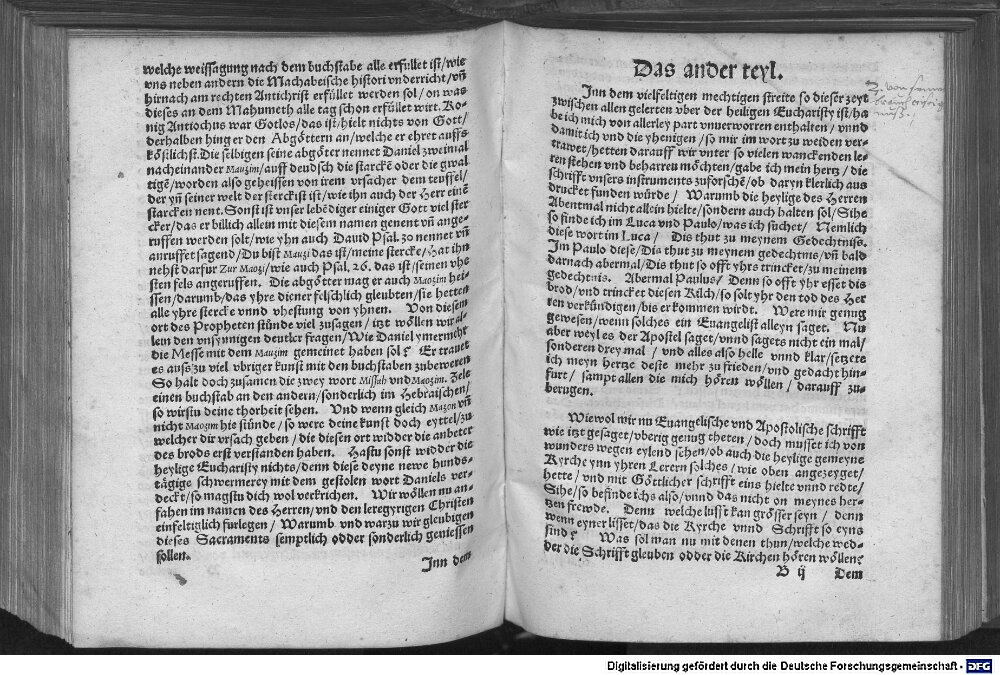 welche weissagung nach dem buchstabe alle erfüllet ist/wie
vns neben andern die Machabeische histori vnderricht/vñ
hirnach am rechten Antichrist erfüllet werden sol/on was
dieses an dem Mahumeth alle tag schon erfüllet wirt. Ko-
nig Antiochus war Gotlos/das ist/hielt nichts von Gott/
derhalben hing er den Abgöttern an/welche er ehret auffs
köstlichst. Die selbigen seine abgöter nennet Daniel zweimal
nacheinander Mauzim/auff deudsch die starckē oder die gwal
tigē/worden also geheissen von irem vrsacher dem teuffel/
der yñ seiner welt der sterckist ist/wie ihn auch der Herr einē
starcken nent. Sonst ist vnser lebēdiger einiger Gott viel ster
cker/das er billich allein mit diesem namen genent vñ ange-
ruffen werden solt/wie yhn auch David Psal. 30 nennet vñ
anruffet sagend/Du bist Mauzi das ist/meine stercke/Hat ihn
nehst darfur Zur Maozi/wie auch Psal. 26. das ist/seinen vhe
sten fels angeruffen. Die abgötter mag er auch Maozim hei-
ssen/darumb/das yhre diener felschlich gleubten/sie hetten
alle yhre stercke vnnd vhestung von yhnen. Von diesem
ort des Propheten stünde viel zusagen/itzt wöllen wir al-
lein den vnsynnigen deutler fragen/Wie Daniel ymermehr
die Messe mit dem Mauzim gemeinet haben sol? Er trauet
es auß zu viel vbriger kunst mit den buchstaben zubeweren
So halt doch zusamen die zwey wort Missah vnd Maozim. Zele
einen buchstab an den andern/sonderlich im Hebraischen/
so wirstu deine thorheit sehen. Vnd wenn gleich Mazon vñ
nicht Maozim hie stünde/so were deine kunst doch eyttel/zu
welcher dir vrsach geben/die diesen ort widder die anbeter
des brods erst verstanden haben. Hastu sonst widder die
heylige Eucharisty nichts/denn diese deyne newe hunds-
tägige schwermerey mit dem gestolen wort Daniels ver-
deckt/so magstu dich wol verkrichen. Wir wöllen nu an-
fahen im namen des Herren/vnd den leregyrigen Christen
einfeltiglich furlegen/Warumb vnd warzu wir gleubigen
dieses Sacraments semptlich odder sonderlich geniessen
sollen.
Inn dem
Das ander teyl.
Inn dem vielfeltigen mechtigen streite so dieser zeyt
zwischen allen gelerten vber der heiligen Eucharisty ist/ha
be ich mich von allerley part vnuerworren enthalten/vnnd
damit ich vnd die yhenigen/so mir im wort zu weiden ver-
trawet/hetten darauff wir vnter so vielen wanckenden le-
ren stehen vnd beharren möchten/gabe ich mein hertz/die
schrifft vnsers instruments zuforschē/ob daryn klerlich aus
drucket funden würde/Warumb die heylige des Herren
Abentmal nicht allein hielte/sondern auch halten sol/Sihe
so finde ich im Luca vnd Paulo/was ich suchet/Nemlich
diese wort im Luca/Dis thut zu meynem Gedechtniss.
Im Paulo diese/Dis thut zu meynem gedechtnis/vñ bald
darnach abermal/Dis thut so offt yhrs trincket/zu meinem
gedechtnis. Abermal Paulus/Denn so offt yhr esset dis
brod/vnd trincket diesen Kilch/so solt yhr den tod des Her
ren verkündigen/bis er kommen wirdt. Were mir genug
gewesen/wenn solches ein Euangelist alleyn saget. Nu
aber weyl es der Apostel saget/vnnd sagets nicht ein mal/
sonderen drey mal/vnd alles also helle vnnd klar/setzete
ich meyn hertze deste mehr zu frieden/vnd gedacht hin-
furt/sampt allen die mich hören wöllen/darauff zu-
berugen.
Wiewol mir nu Euangelische vnd Apostolische schrifft
wie itzt gesaget/vberig genug theten/doch musset ich von
wunders wegen eylend sehen/ob auch die heylige gemeyne
Kyrche ynn yhren Lerern solches/wie oben angezeyget/
hette/vnd mit Göttlicher schrifft eins hielte vnnd redte/
Sihe/so befinde ichs also/vnnd das nicht on meynes her-
tzen frewde. Denn welche lust kan grösser seyn/denn
wenn eyner lisset/das die Kyrche vnnd Schrifft so eyns
sind? Was sol man nu mit denen thun/welche wed-
der die Schrifft gleuben odder die Kirchen hören wöllen?
B ij Dem
Digitalisierung gefördert durch die Deutsche Forschungsgemeinschaft - DFG